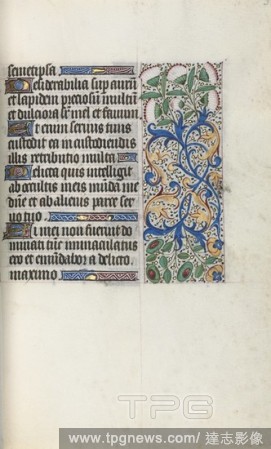 semetipsa
Desiderabilia sup aurū
et lapidem preciosū multū
et dulciora sr̄ mel et fauum
Et enim seruus tuus
custodit ea in custodiendis
illis retributio multa
Delicta quis intelligit
ab ocultis meis mūda me
dn̄e et ab alienis parce ser
uo tuo
Si mei non fuerīt do
minati tūc immaculatus
ero et emūdabor a delicto
maximo
TPG
www.tpgnews.com/達志影像